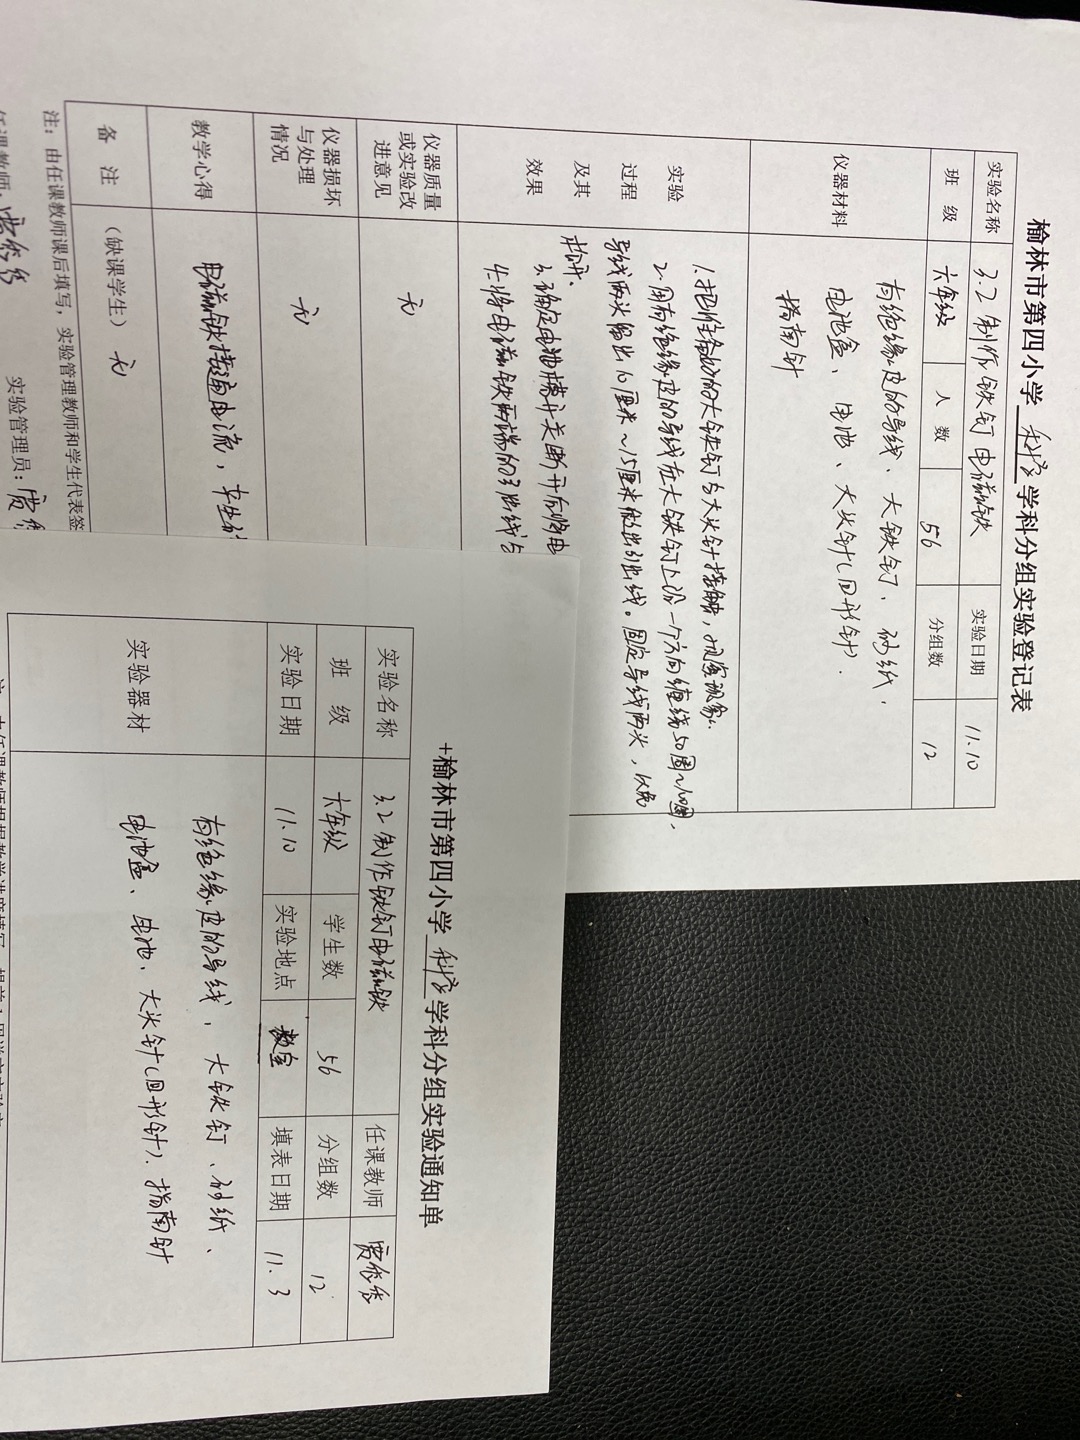 榆林市第四小学 科学 学科分组实验登记表
实验名称 3.2制作铁钉电磁铁 实验日期 11.10
班 级 六年级 人 数 56 分组数 12
仪器材料
有绝缘皮的导线、大铁钉、砂纸、
电池盒、电池、大头针(回形针)
指南针
实验
过程
及其
效果
1.把准备好的大铁钉与大头针接触,观察现象。
2.用有绝缘皮的导线在大铁钉上沿一个方向缠绕50圈~100圈,
导线两头留出10厘米~15厘米做出引出线。固定导线两头,以免
松开。
3.确定电池槽开关断开后将电
4.将电磁铁两端的引出线与
仪器质量
或实验改
进意见
无
仪器损坏
与处理
情况
无
教学心得
电磁铁接通电流,
备 注
(缺课学生) 无
注:由任课教师课后填写,实验管理教师和学生代表签
任课教师:贾
实验管理员:贾
+榆林市第四小学 科学 学科分组实验通知单
实验名称 3.2制作铁钉电磁铁 任课教师 贾
班 级 六年级 学生数 56 分组数 12
实验日期 11.10 实验地点 教室 填表日期 11.3
实验器材
有绝缘皮的导线、大铁钉、砂纸、
电池盒、电池、大头针(回形针)、指南针